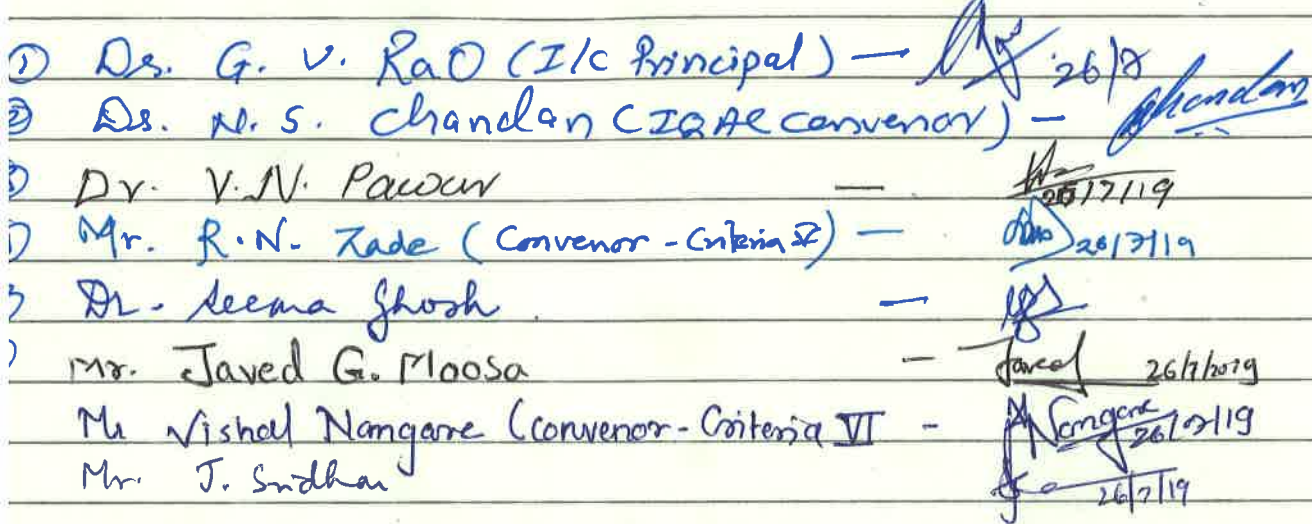 ① Dr. G. V. Rao (I/c Principal) — 26/7
② Dr. N. S. Chandan (IQAC convenor) — Chandan
Dr. V.N. Pawar — 26/7/19
Mr. R.N. Zade (Convenor - Criteria V) — 26/7/19
Dr. Seema Ghosh —
Mr. Javed G. Moosa — Javed 26/7/2019
Mr Vishal Nangare (convenor - Criteria VI - Nangare 26/7/19
Mr. J. Sridhar 26/7/19